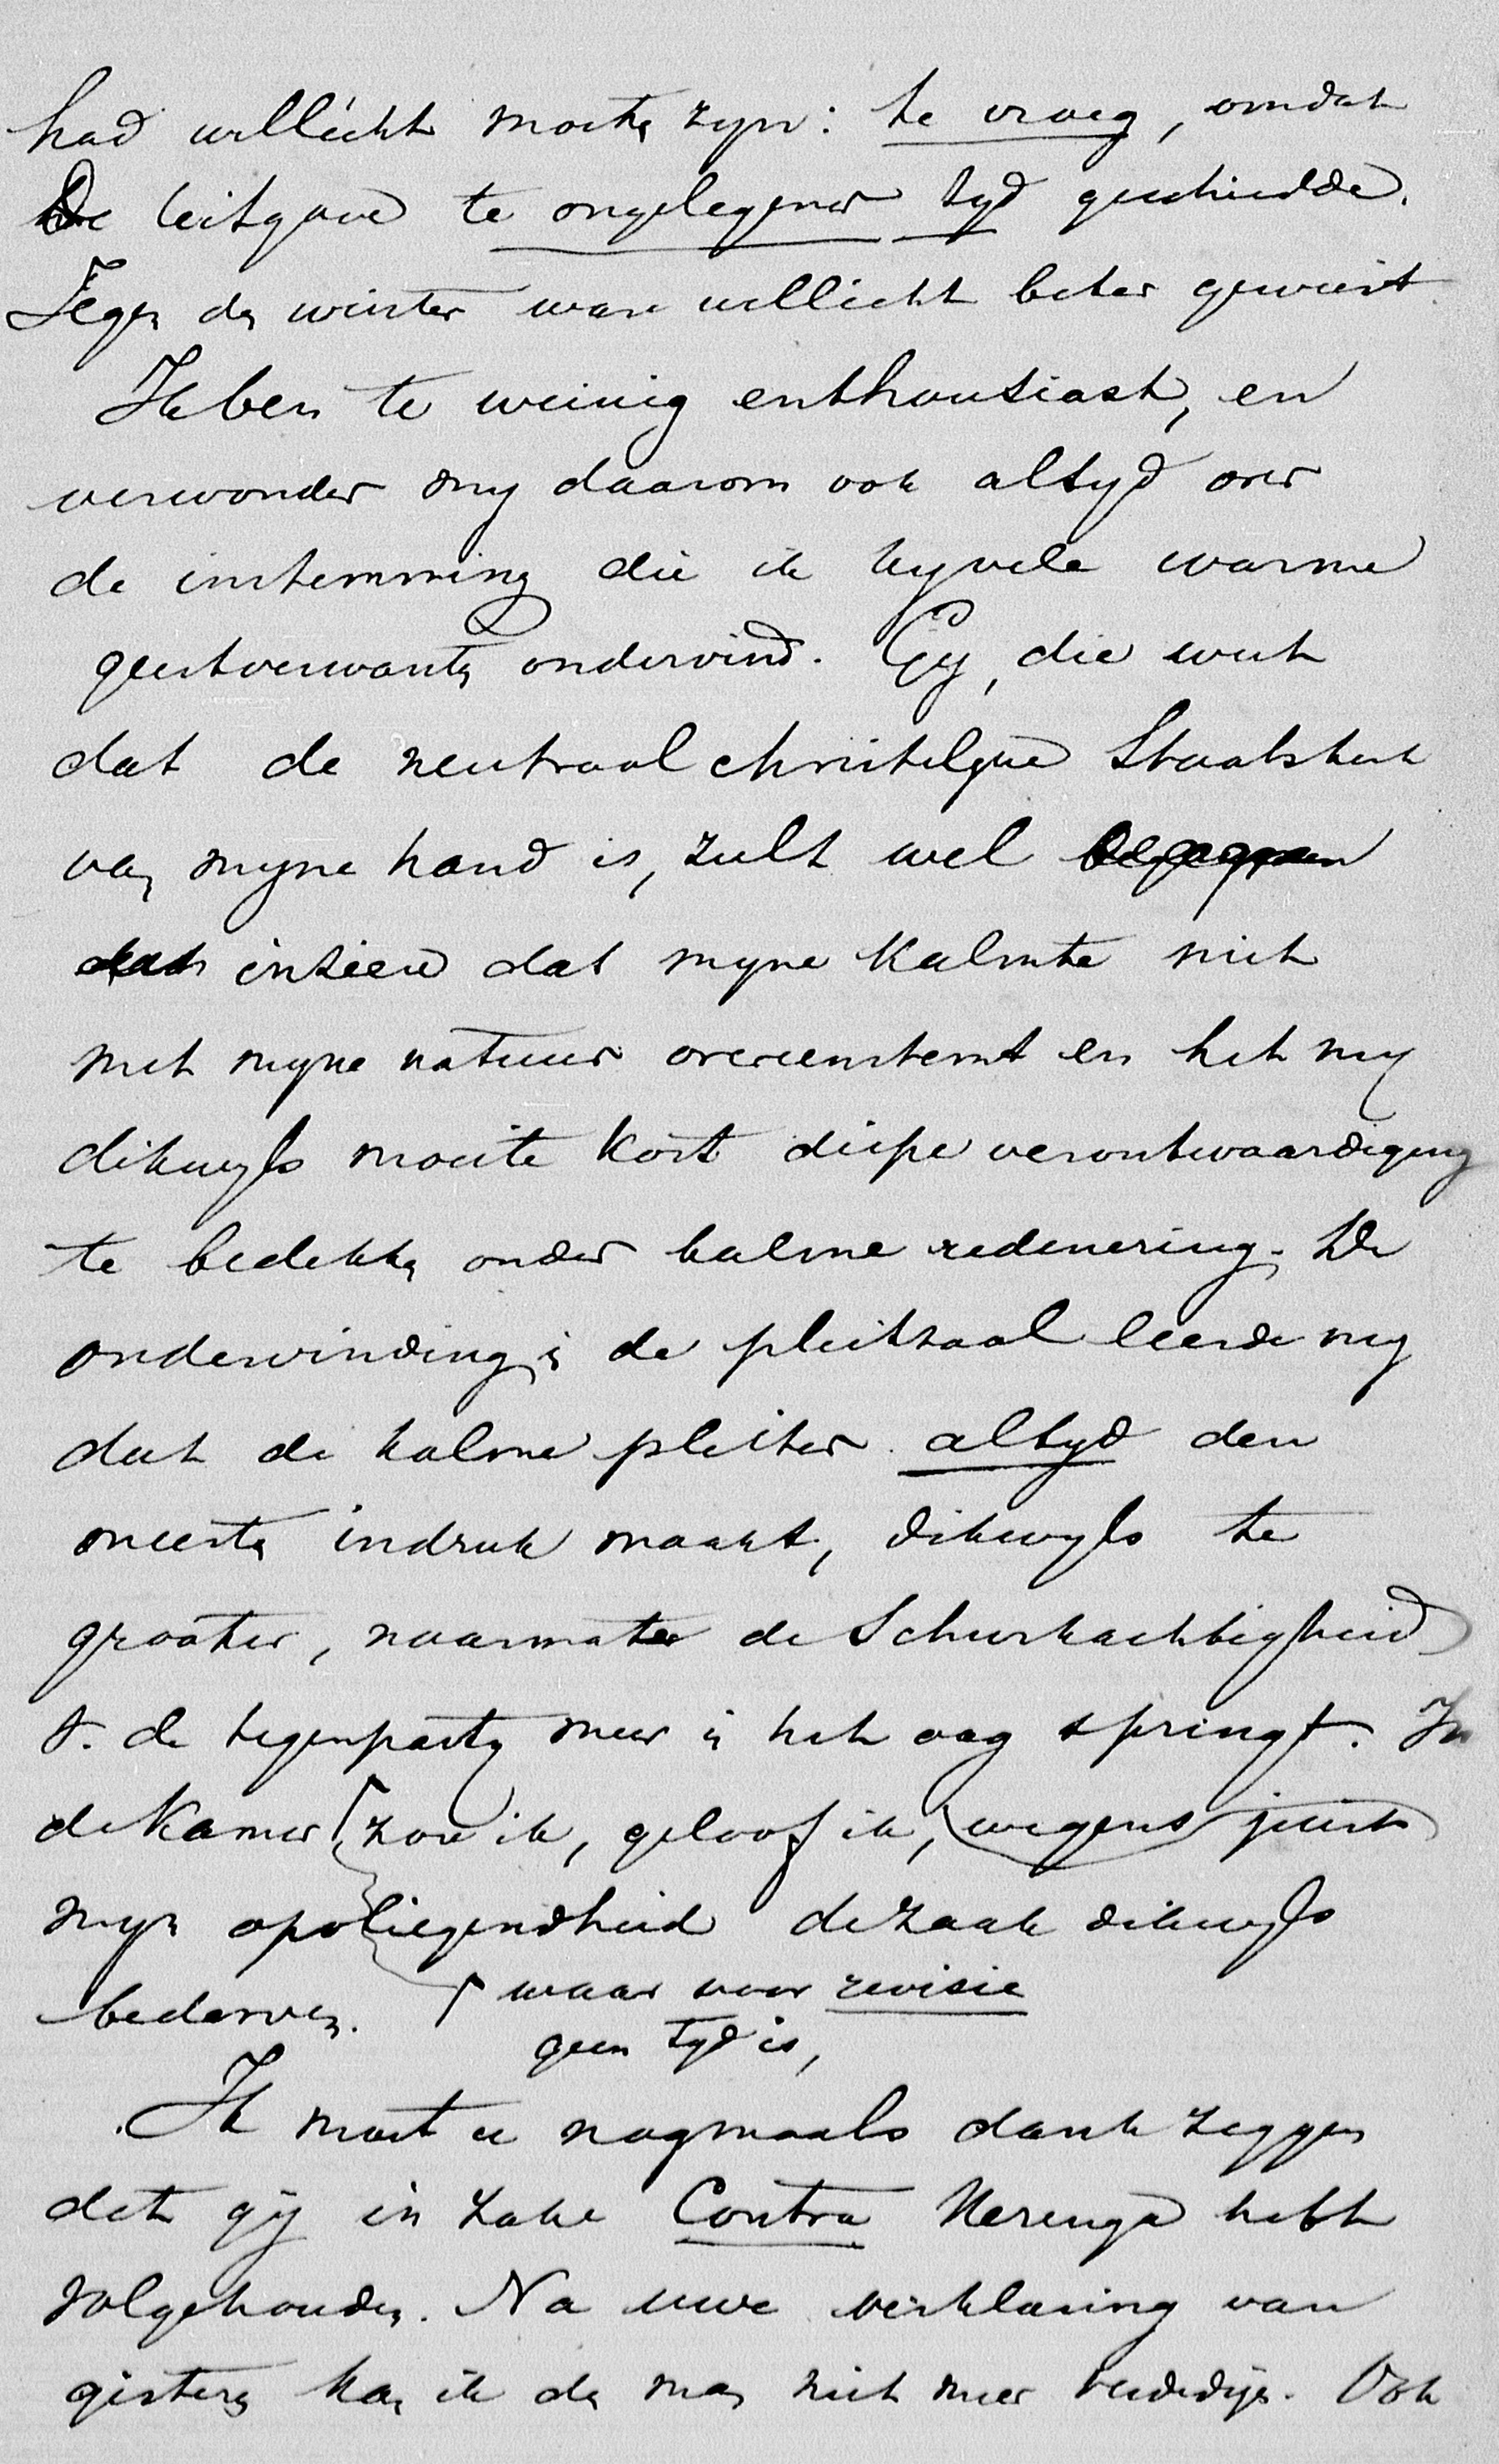 had wellicht moeten zyn: te vroeg, omdat
de uitgave te ongelegener tyd geschiedde.
Tegen den winter ware wellicht beter geweest
Ik ben te weinig enthousiast, en
verwonder my daarom ook altyd over
de instemming die ik by vele warme
geestverwanten ondervind. Gy, die weet
dat de neutraal christelyke Staatskerk
van myne hand is, zult wel begrypen
dat inzien dat myne kalmte niet
met myne natuur overeenstemt en het my
dikwyls moeite kost diepe verontwaardiging
te bedekken onder kalme redenering. De
ondervinding in de pleitzaal leerde my
dat de kalme pleiter altyd den
meesten indruk maakt, dikwyls te
grooter, naarmate de Schurkachtigheid
v. de tegenparty meer in het oog springt. In
de Kamer zou ik, geloof ik, wegens juist
myn opvliegendheid de zaak dikwyls
bederven. waar voor revisie
geen tyd is,
Ik moet u nogmaals dank zeggen
dat gij in zake Contra Neringa hebt
volgehouden. Na uwe verklaring van
gisteren kan ik den man niet meer verdedigen. Ook